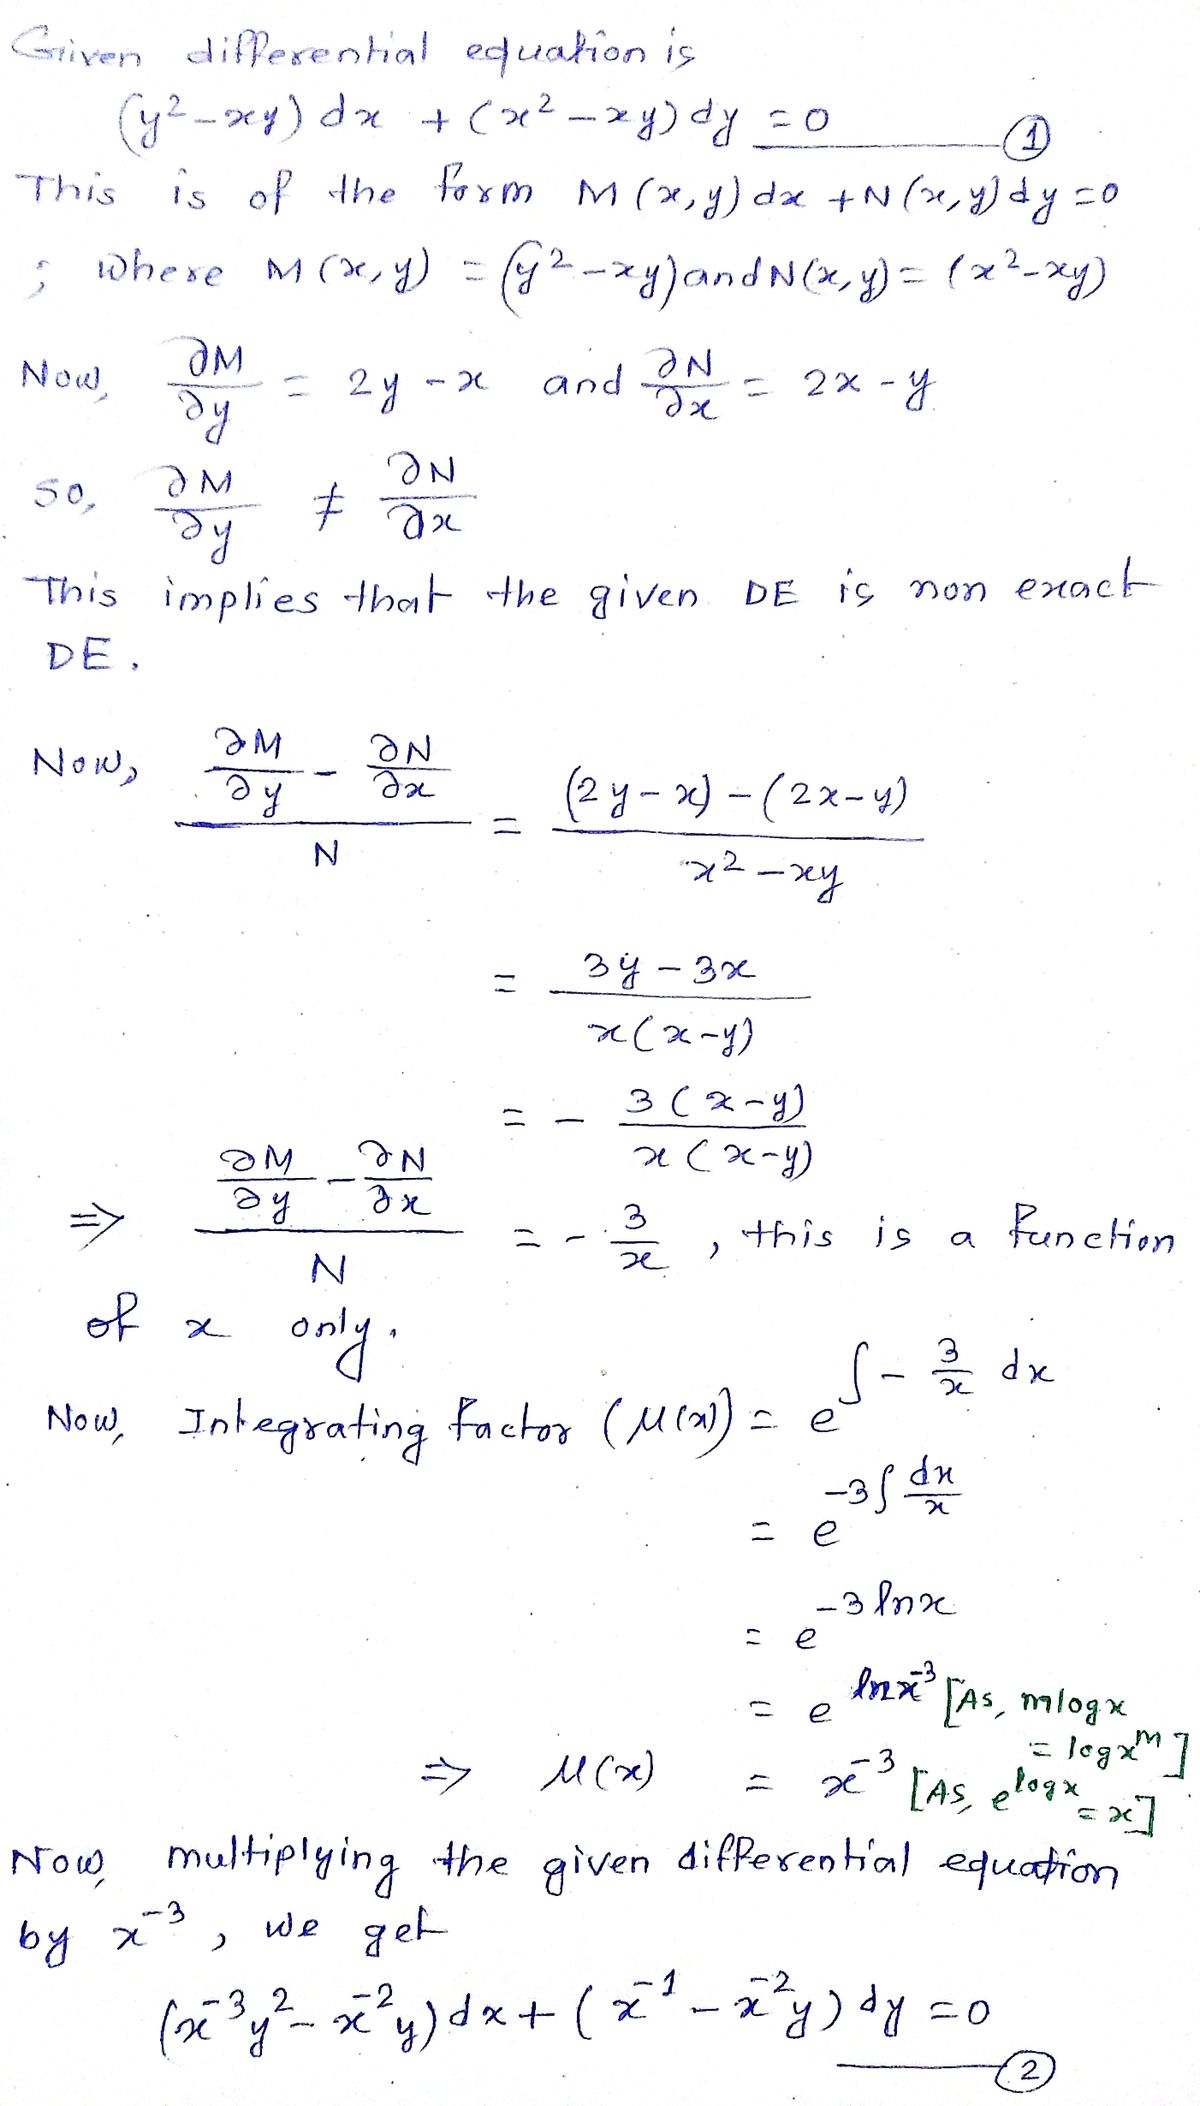 Given differential equation is
(y² - xy) dx + (x² - xy) dy = 0 ——— ①
This is of the form M(x, y) dx + N(x, y) dy = 0
; where M(x, y) = (y² - xy) and N(x, y) = (x² - xy)
Now, ∂M/∂y = 2y - x and ∂N/∂x = 2x - y
So, ∂M/∂y ≠ ∂N/∂x
This implies that the given DE is non exact
DE.
Now, (∂M/∂y - ∂N/∂x)/N = ((2y - x) - (2x - y))/(x² - xy)
= (3y - 3x)/(x(x - y))
= - 3(x - y)/(x(x - y))
⇒ (∂M/∂y - ∂N/∂x)/N = - 3/x , this is a function
of x only.
Now, Integrating factor (μ(x)) = e^(∫ - 3/x dx)
= e^(-3∫ dx/x)
= e^(-3 ln x)
= e^(ln x⁻³) [As, m log x = log x^m]
⇒ μ(x) = x⁻³ [As, e^(log x) = x]
Now, multiplying the given differential equation
by x⁻³, we get
(x⁻³y² - x⁻²y) dx + (x⁻¹ - x⁻²y) dy = 0 ——— ②